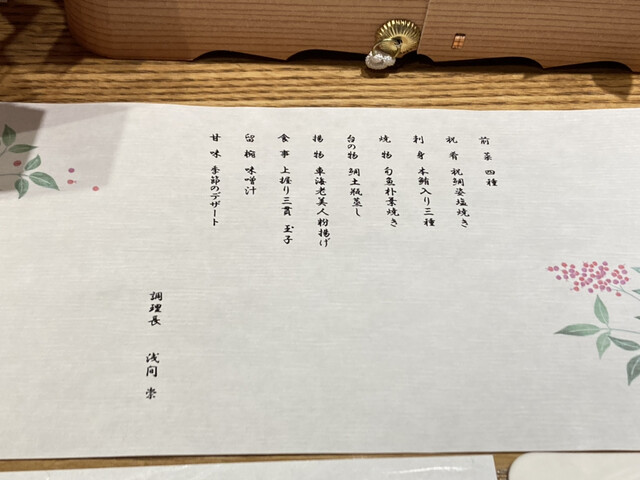 前菜 四種
祝肴 祝鯛姿塩焼き
刺身 本鮪入り三種
焼物 旬魚朴葉焼き
台の物 鯛土瓶蒸し
揚物 車海老美人粉揚げ
食事 上握り三貫 玉子
留椀 味噌汁
甘味 季節のデザート
調理長 浅間 崇